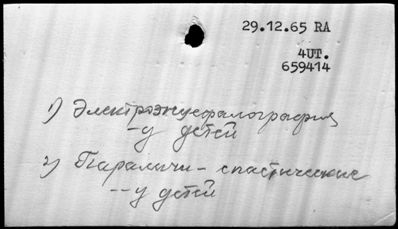 29.12.65 RA
4UT.
659414
1) Электроэнцефалография
-у детей
2) Параличи - спастические
--у детей